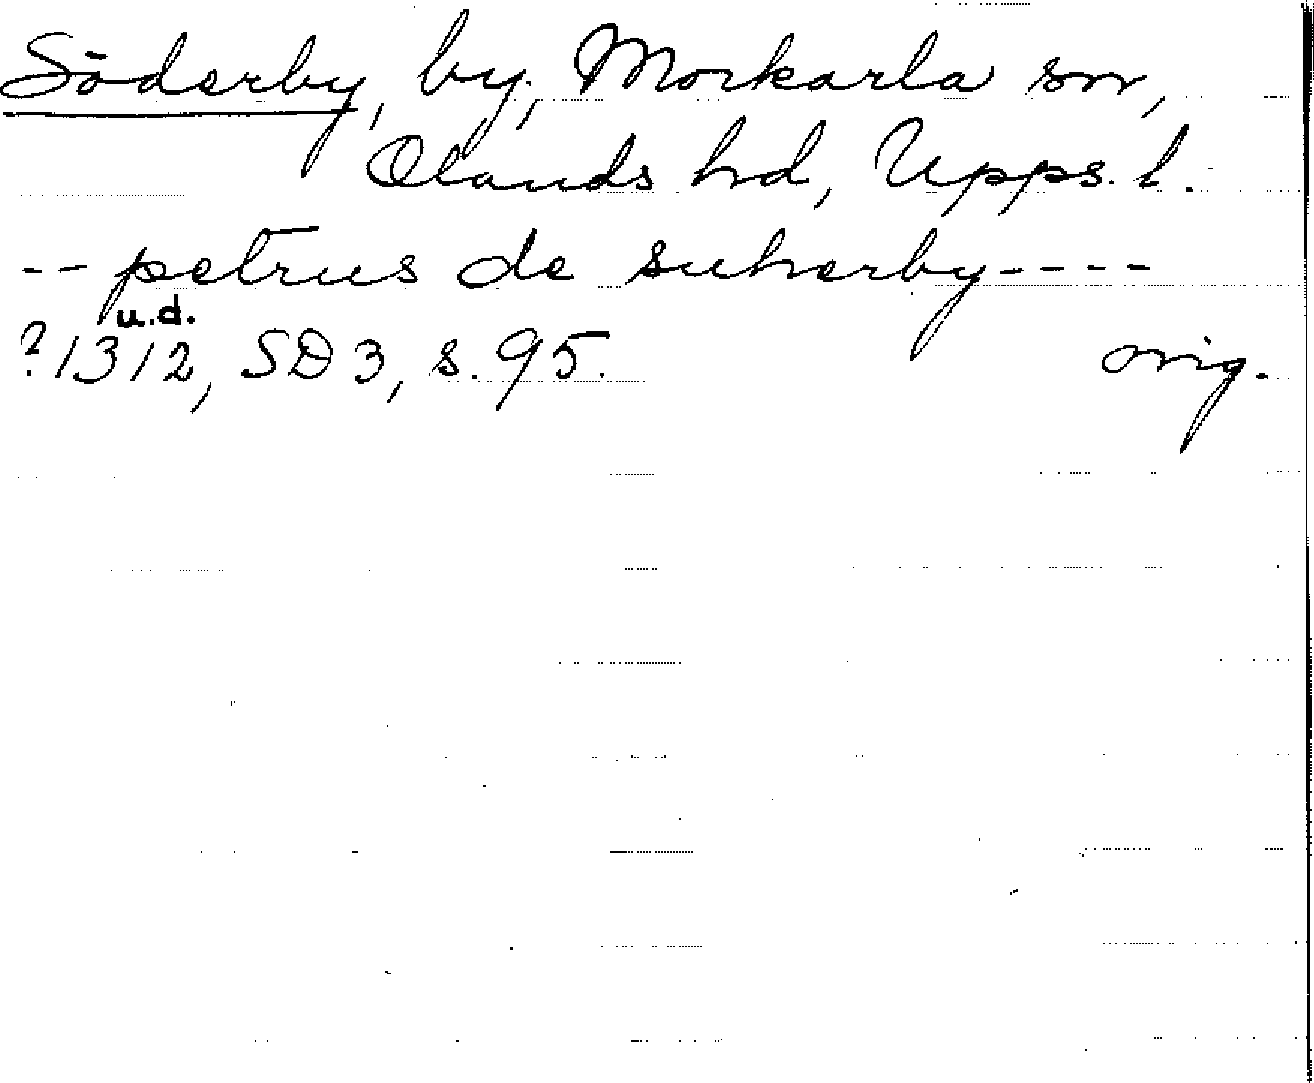 Söderby, by, Morkarla sn,
Olands hd, Upps. l.
-- petrus de suherby ----
u.d.
? 1312, SD 3, s. 95. orig.